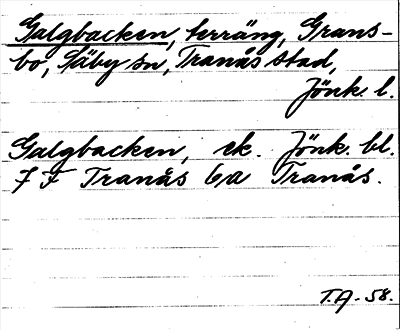 Galgbacken, terräng, Grans-
bo, Säby sn, Tranås stad,
Jönk. l.
Galgbacken, ek. Jönk. bl.
7 F Tranås 6a Tranås.
T.A. -58.